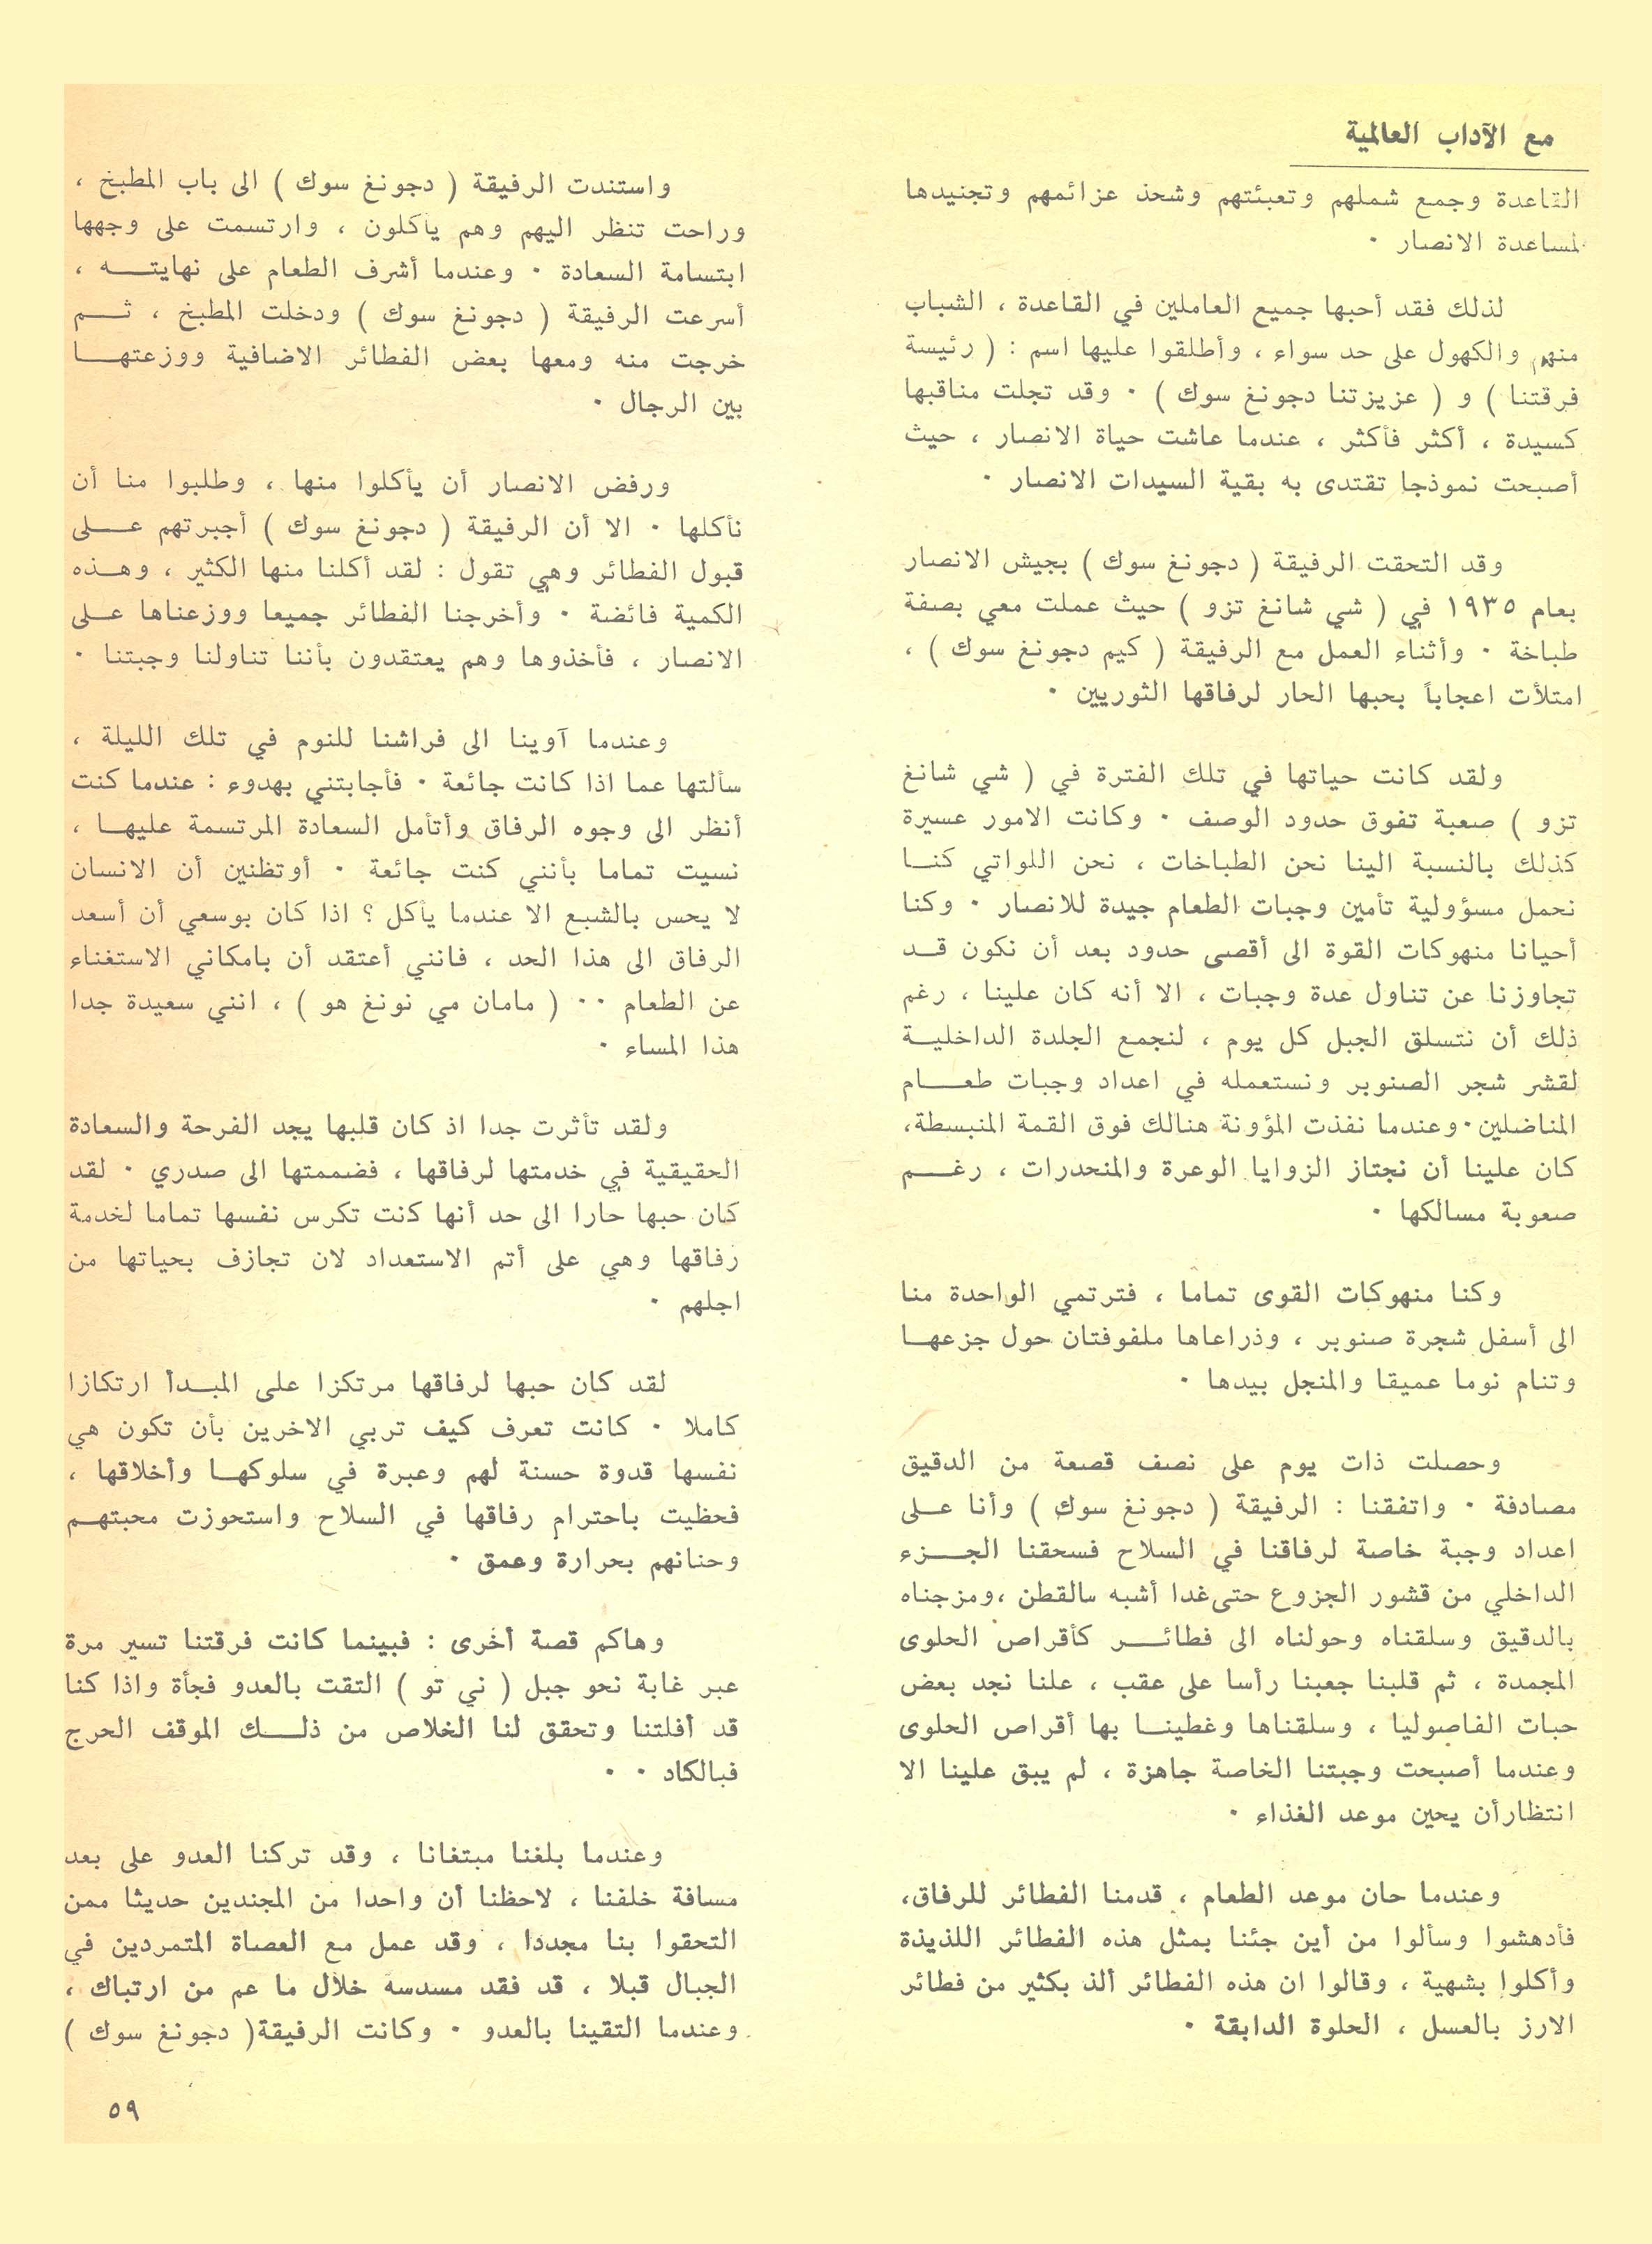 مع الآداب العالمية
القاعدة وجمع شملهم وتعبئتهم وشحذ عزائمهم وتجنيدها
لمساعدة الانصار ٠
لذلك فقد أحبها جميع العاملين في القاعدة ، الشباب
منهم والكهول على حد سواء ، وأطلقوا عليها اسم : ( رئيسة
فرقتنا ) و ( عزيزتنا دجونغ سوك ) ٠ وقد تجلت مناقبها
كسيدة ، أكثر فأكثر ، عندما عاشت حياة الانصار ، حيث
أصبحت نموذجا تقتدى به بقية السيدات الانصار ٠
وقد التحقت الرفيقة ( دجونغ سوك ) بجيش الانصار
بعام ١٩٣٥ في ( شي شانغ تزو ) حيث عملت معي بصفة
طباخة ٠ وأثناء العمل مع الرفيقة ( كيم دجونغ سوك ) ،
امتلأت اعجاباً بحبها الحار لرفاقها الثوريين ٠
ولقد كانت حياتها في تلك الفترة في ( شي شانغ
تزو ) صعبة تفوق حدود الوصف ٠ وكانت الامور عسيرة
كذلك بالنسبة الينا نحن الطباخات ، نحن اللواتي كنا
نحمل مسؤولية تأمين وجبات الطعام جيدة للانصار ٠ وكنا
أحيانا منهوكات القوة الى أقصى حدود بعد أن نكون قد
تجاوزنا عن تناول عدة وجبات ، الا أنه كان علينا ، رغم
ذلك أن نتسلق الجبل كل يوم ، لنجمع الجلدة الداخلية
لقشر شجر الصنوبر ونستعمله في اعداد وجبات طعام
المناضلين٠ وعندما نفذت المؤونة هنالك فوق القمة المنبسطة،
كان علينا أن نجتاز الزوايا الوعرة والمنحدرات ، رغم
صعوبة مسالكها ٠
وكنا منهوكات القوى تماما ، فترتمي الواحدة منا
الى أسفل شجرة صنوبر ، وذراعاها ملفوفتان حول جزعها
وتنام نوما عميقا والمنجل بيدها ٠
وحصلت ذات يوم على نصف قصعة من الدقيق
مصادفة ٠ واتفقنا : الرفيقة ( دجونغ سوك ) وأنا على
اعداد وجبة خاصة لرفاقنا في السلاح فسحقنا الجزء
الداخلي من قشور الجزوع حتى غدا أشبه سالقطن ،ومزجناه
بالدقيق وسلقناه وحولناه الى فطائر كأقراص الحلوى
المجمدة ، ثم قلبنا جعبنا رأسا على عقب ، علنا نجد بعض
حبات الفاصوليا ، وسلقناها وغطينا بها أقراص الحلوى
وعندما أصبحت وجبتنا الخاصة جاهزة ، لم يبق علينا الا
انتظارأن يحين موعد الغذاء ٠
وعندما حان موعد الطعام ، قدمنا الفطائر للرفاق،
فأدهشوا وسألوا من أين جئنا بمثل هذه الفطائر اللذيذة
وأكلوا بشهية ، وقالوا ان هذه الفطائر ألذ بكثير من فطائر
الارز بالعسل ، الحلوة الدابقة ٠
واستندت الرفيقة ( دجونغ سوك ) الى باب المطبخ ،
وراحت تنظر اليهم وهم يأكلون ، وارتسمت على وجهها
ابتسامة السعادة ٠ وعندما أشرف الطعام على نهايته ،
أسرعت الرفيقة ( دجونغ سوك ) ودخلت المطبخ ، ثم
خرجت منه ومعها بعض الفطائر الاضافية ووزعتها
بين الرجال ٠
ورفض الانصار أن يأكلوا منها ، وطلبوا منا أن
نأكلها ٠ الا أن الرفيقة ( دجونغ سوك ) أجبرتهم على
قبول الفطائر وهي تقول : لقد أكلنا منها الكثير ، وهذه
الكمية فائضة ٠ وأخرجنا الفطائر جميعا ووزعناها على
الانصار ، فأخذوها وهم يعتقدون بأننا تناولنا وجبتنا ٠
وعندما آوينا الى فراشنا للنوم في تلك الليلة ،
سألتها عما اذا كانت جائعة ٠ فأجابتني بهدوء : عندما كنت
أنظر الى وجوه الرفاق وأتأمل السعادة المرتسمة عليها ،
نسيت تماما بأنني كنت جائعة ٠ أوتظنين أن الانسان
لا يحس بالشبع الا عندما يأكل ؟ اذا كان بوسعي أن أسعد
الرفاق الى هذا الحد ، فانني أعتقد أن بامكاني الاستغناء
عن الطعام ٠٠ ( مامان مي نونغ هو ) ، انني سعيدة جدا
هذا المساء ٠
ولقد تأثرت جدا اذ كان قلبها يجد الفرحة والسعادة
الحقيقية في خدمتها لرفاقها ، فضممتها الى صدري ٠ لقد
كان حبها حارا الى حد أنها كنت تكرس نفسها تماما لخدمة
رفاقها وهي على أتم الاستعداد لان تجازف بحياتها من
اجلهم ٠
لقد كان حبها لرفاقها مرتكزا على المبدأ ارتكازا
كاملا ٠ كانت تعرف كيف تربي الاخرين بأن تكون هي
نفسها قدوة حسنة لهم وعبرة في سلوكها وأخلاقها ،
فحظيت باحترام رفاقها في السلاح واستحوزت محبتهم
وحنانهم بحرارة وعمق ٠
وهاكم قصة أخرى : فبينما كانت فرقتنا تسير مرة
عبر غابة نحو جبل ( ني تو ) التقت بالعدو فجأة واذا كنا
قد أفلتنا وتحقق لنا الخلاص من ذلك الموقف الحرج
فبالكاد ٠ ٠
وعندما بلغنا مبتغانا ، وقد تركنا العدو على بعد
مسافة خلفنا ، لاحظنا أن واحدا من المجندين حديثا ممن
التحقوا بنا مجددا ، وقد عمل مع العصاة المتمردين في
الجبال قبلا ، قد فقد مسدسه خلال ما عم من ارتباك ،
وعندما التقينا بالعدو ٠ وكانت الرفيقة( دجونغ سوك )
٥٩